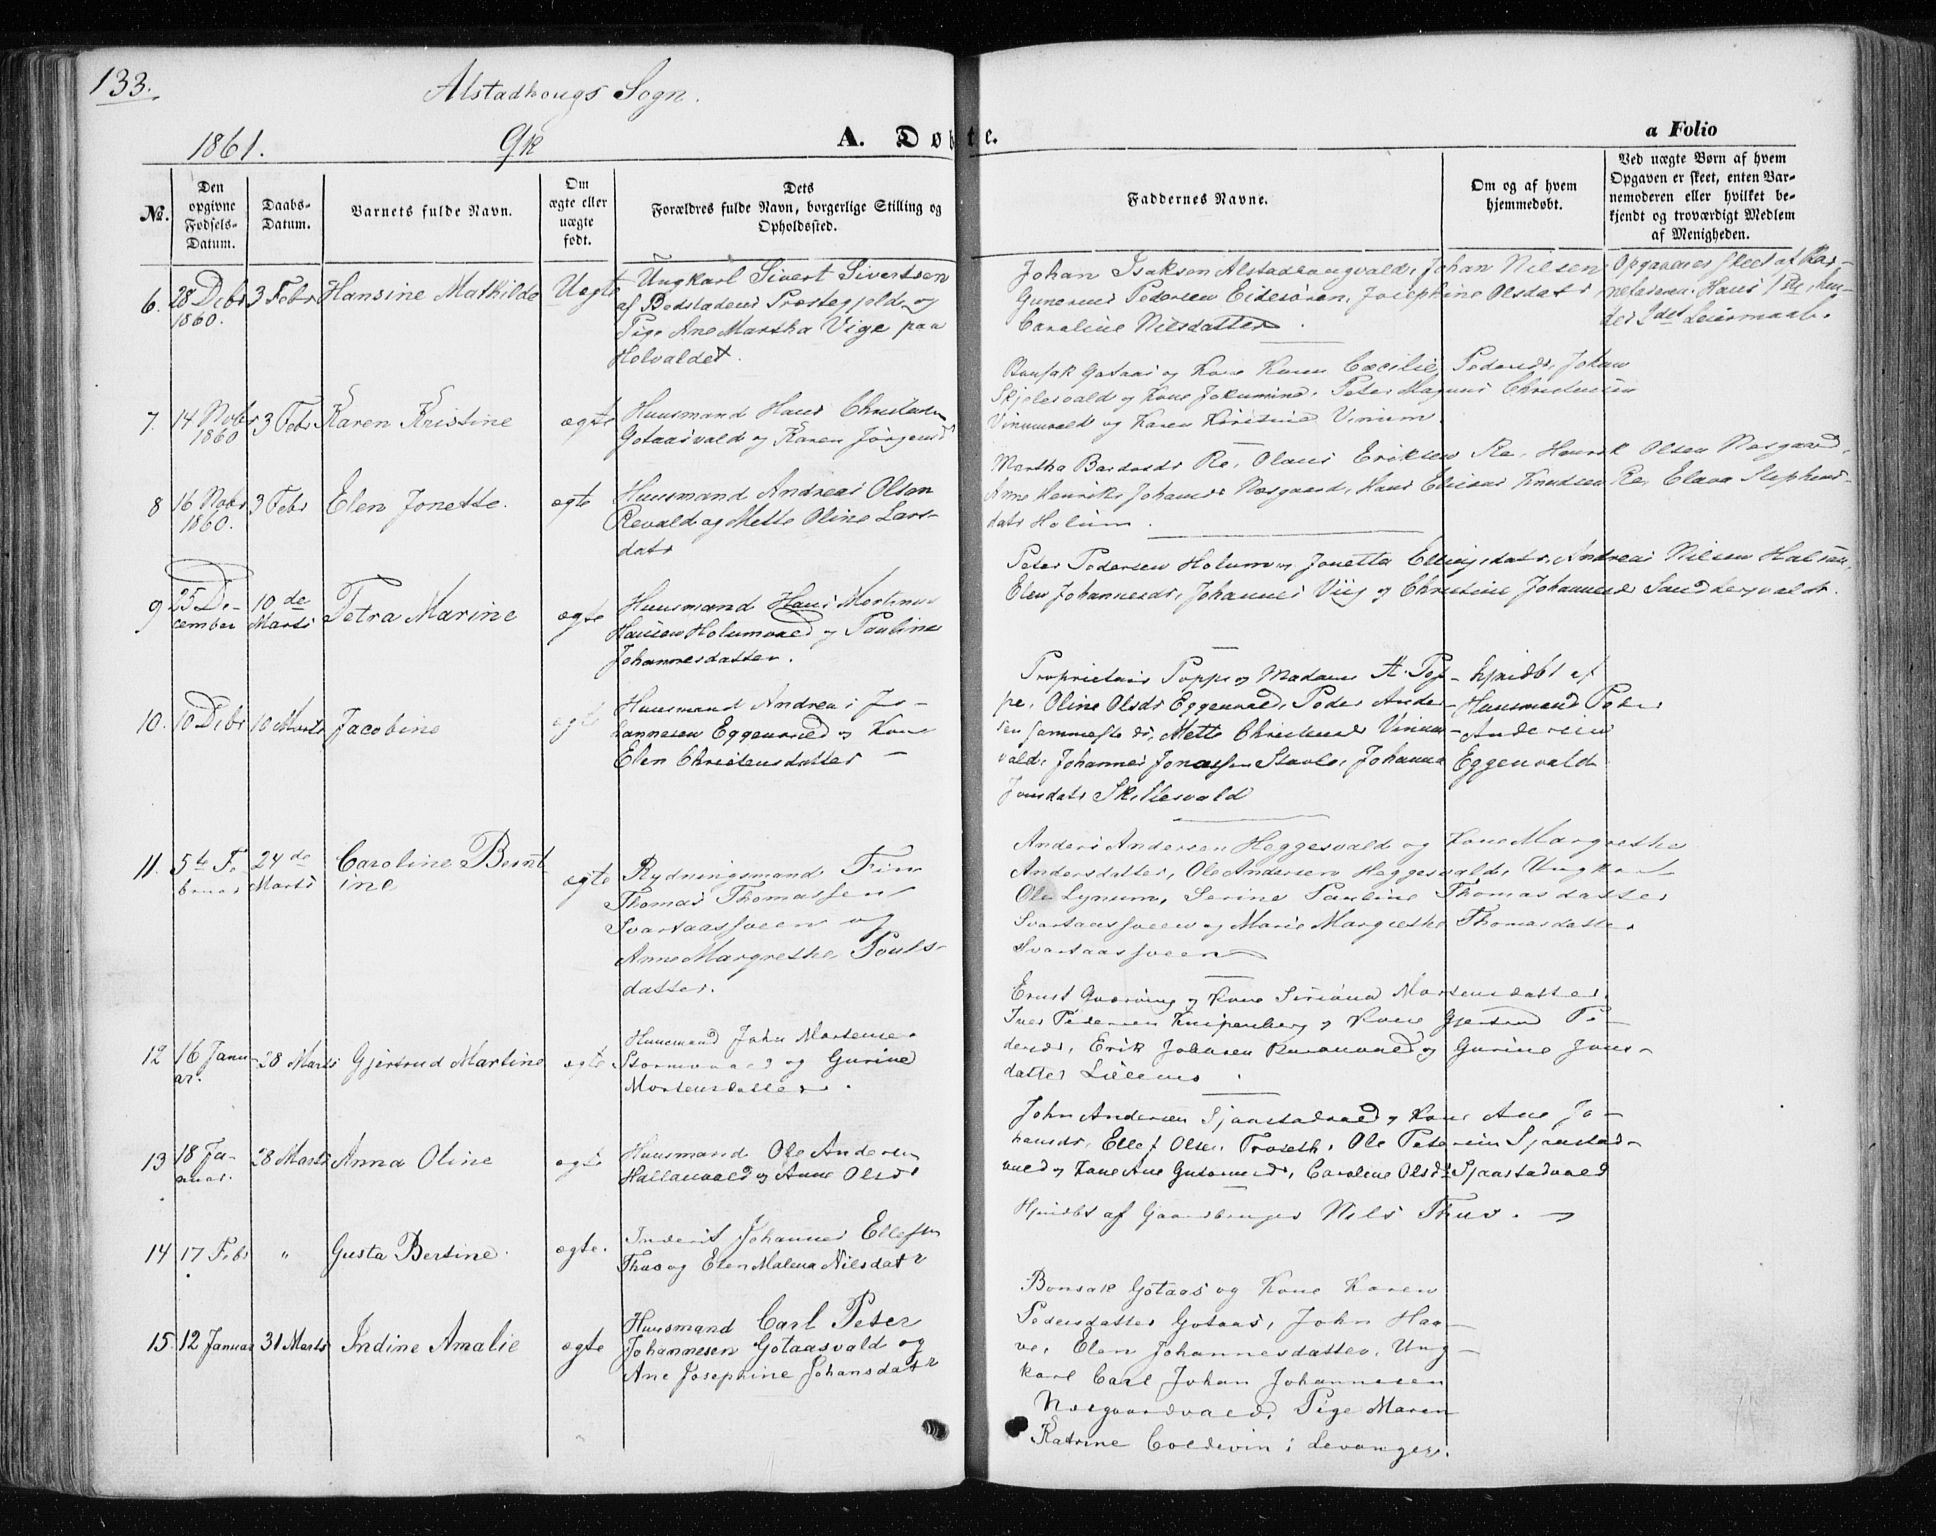 133.
Alstadhougs Sogn.
1861. Qk A. Døbte. a Folio
No.
Den opgivne Fødsels-Datum.
Daabs-Datum.
Barnets fulde Navn.
Om ægte eller uægte født.
Dets Forældres fulde Navn, borgerlige Stilling og Opholdssted.
Faddernes Navne.
Om og af hvem hjemmedøbt.
Ved uægte Børn af hvem Opgaven er skeet, enten Barnemoderen eller hvilket bekjendt og troværdigt Medlem af Menigheden.
6. 28 Debr 1860. 3 Febr Hansine Mathilde Uegte
Ungkarl Sivert Sivertsen
af Bedstadens Præstegjeld og
Pige Ane Martha Vige paa
Holvaldet.
Johan Isaksen Alstadhaugvald, Johan Nilsen
Gunerius Pedersen Eidesøren, Josephine Olsdatr
Caroline Nilsdatter.
Opgaven er skeet af Bar-
nefaderen. Hans 1ste,
des 2det Leiermaal.
7. 14 Nobr 1860 3 Febr Karen Kristine ægte
Huusmand Hans Christensen
Gotaasvald og Karen Jørgensdr
Bonsak Gotaas og Kone Karen Cæcilie Pedersdr, Johan
Skjelesvald og Kone Jokumine, Peter Magnus Christensen
Vinumvald og Karen Kristine Vinum.
8 16 Nobr 1860. 3 Febr Elen Jonette. ægte
Huusmand Andreas Olsen
Revald og Mette Oline Lars-
datr
Martha Bardosdr Re, Olaus Eriksen Re, Henrik Olsen Næsgaard,
Ane Henriks Johansdr Næsgaard, Hans Elisæus Knudsen Re, Elava Stephens-
datr Holum.
9 25 De-
cember 10de Marts Petra Marine ægte
Huusmand Hans Mortinus
Hansen Holumvald og Pauline
Johannesdatter.
Peter Pedersen Holum og Jonetta Ellingsdatr, Andreas Nilsen Halsan,
Elen Johannesdr, Johannes Viig og Christine Johannesdr Sandbergvaldt.
10. 10 Debr 10 Marts Jacobine ægte
Huusmand Andreas Jo-
hannesen Eggenvald og Kone
Elen Christensdatter
Proprietair Poppe og Madame A. Pop-
pe, Oline Olsdr Eggenvald, Peder Ander-
sen sammesteds, Mette Christensdr Vinum-
vald, Johannes Jonassen Stavlo, Johanna
Jonsdatr Skillesvald
hjmdbt af
Huusmand Peder
Andersen
Eggenvald
11. 5te Fe-
bruar 24de Marts Caroline Bernt-
ine ægte
Rydningsmand Finn
Thomas Thomassen
Svartaassveen og
Anne Margrethe Pouls-
datter.
Anders Andersen Heggesvald og Kone Margrethe
Andersdatter, Ole Andersen Heggesvald, Ungkarl
Ole Lynum, Serine Pauline Thomasdatter
Svartaassveen og Marie Margrethe Thomasdatter
Svartaassveen
12 16 Janu-
ar. 28 Marts Gjertrud Martine ægte
Huusmand John Mortense-
Stormovald og Gurine
Mortensdatter.
Ernst Kværving og Kone Siriana Mortensdatter,
Iver Pedersen Knipenberg og Kone Gjertrud Pe-
dersdr, Erik Johnsen Buranvald og Gurine Jons-
datter Lillemo.
13 18 Ja-
nuar. 28 Marts Anna Oline ægte
Huusmand Ole Andersen
Hallanvald og Anne Olsdr
John Andersen Sjaastadvald og Kone Ane Jo-
hansdr, Ellef Olsen Troseth, Ole Petersen Sjaastad-
vald og Kone Ane Gunnersdr, Caroline Olsdr Sjaastadvald
14 17 Febr " Gusta Bertine. ægte.
Inderst Johannes Ellefsen
Thuo og Elen Malena Nilsdatr
Hjmdbt af Gaardbruger Nils Thuo.
15. 12 Januar 31 Marts Indine Amalie ægte
Huusmand Carl Peter
Johannesen Gotaasvald og
Ane Josephine Johansdatr
Bonsak Gotaas og Kone Karen
Pedersdatter Gotaas, John Haa-
ve, Elen Johannesdatter, Ung-
karl Carl Johan Johannesen
Næsgaardvald, Pige Maren
Katrine Coldevin i Levanger.